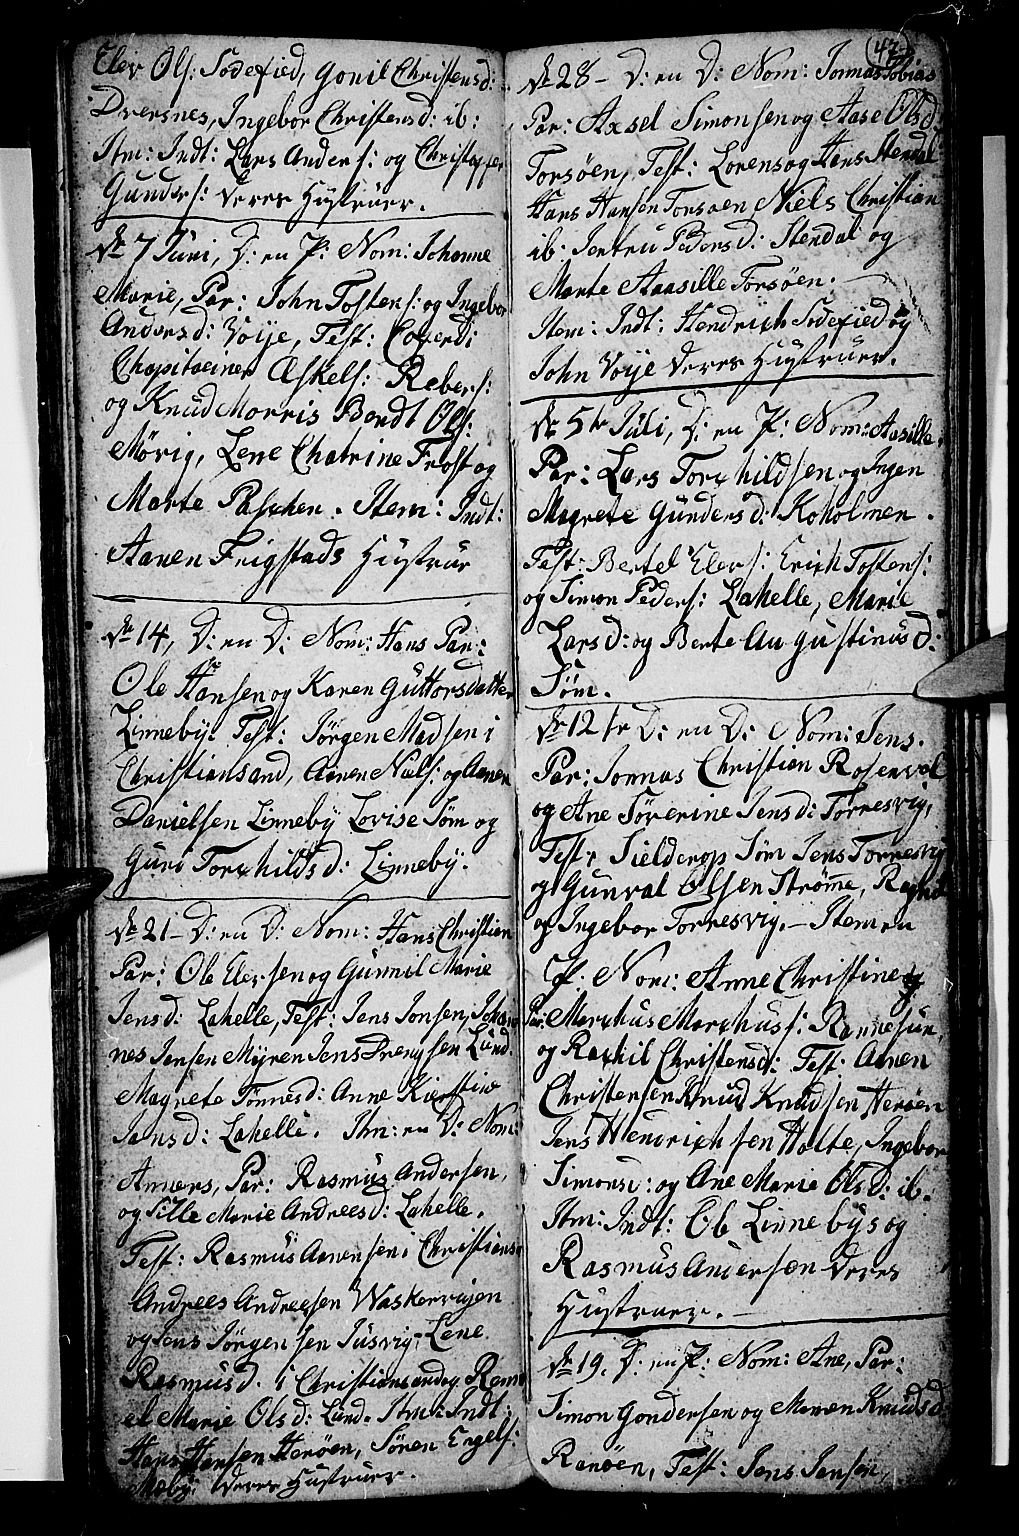 Elev Ols: Sodefied, Gonil Christensd:
Dversnes, Ingebor Christensd: ib:
Itm: Indt: Lars Anders: og Christopfer
Gunders: Deres Hustruer.
No 7 Juni, D: en P: Nom: Johanne
Marie, Par: John Tostens: og Ingebor
Andersd: Voije, Test:
Chapitainer Æskels: Rebers:
og Knud Morris Bendt Ols:
Mörig, Lene Chatrine Frost og
Marte Paschen. Item: Indt:
Aanen Frigstads Hustrue
No 14, D: en D: Nom: Hans Par:
Ole Hansen og Karen Guttorsdatter
Linneby. Test: Jörgen Madsen i
Christiansand, Aanen Niels: og Aanen
Danielsen Linneby Lovise Söm og
Guri Torxhildsd: Linneby.
No 21 - D: en D: Nom: Hans Christian
Par: Ole Elersen og Gunnil Marie
Jensd: Lahelle, Test: Jens Jonsen, Johan
nes Jensen Myren Jens Drengsen Lund.
Magrete Tönnesd: Anne Kierstine
Jansd: Lahelle. Itm: en D: Nom:
Anners, Par: Rasmus Andersen,
og Sille Marie Andreesd: Lahelle.
Test: Rasmus Aanensen i Christians
Andrees Andreesen Waskervigen
og Jens Jörgensen Jusvig, Lene
Rasmusd. i Christiansand og
el Marie Olsd: Lund. Itm: Indt:
Hans Hansen Heröen, Sören Engels:
Möby: Deres Hustruer.
42
No 28 - D: en D: Nom: Jonnas Tobias
Par: Axsel Simonsen og Aase Olsd:
Torsöen, Test: Lorens og Hans Stendal
Hans Hansen Torsöen Niels Christian
ib: Jertru Pedersd: Stendal og
Marte Aaasille Torsöen.
Item: Indt: Hendrich Sodefied og
John Voije Deres Hustruer.
No 5te Juli, D: en P: Nom: Aasille.
Par: Lars Torxhildsen og Ingen
Magrete Gundersd: Koholmen.
Test: Bertel Elers: Erich Tostens:
og Simon Peders: Lahelle, Marie
Larsd: og Berte Augustinusd:
Söm.
No 12te D: en D: Nom: Jens.
Par: Jonnas Christian Rosenval
og Ane Söverine Jensd: Torresvig,
Test: Sielderop Söm Jens Torresvig
og Gunval Olsen Strömme, Ragnil
og Ingebor Torresvig. - Item en
P: Nom: Anne Christine
Par: Marxhus Marxhus: Rannesun,
og Raxhil Christensd: Test: Aanen
Christensen Knud Knudsen Heröen
Jens Hendrichsen Holte, Ingebor
Simonsd: og Ane Marie Olsd: ib.
Itm: Indt: Ole Linnebys og
Rasmus Andersen Deres
Hustruer. -
No 19. D: en P: Nom: Ane, Par:
Simon Gondersen og Maren Knudsd:
Ranöen, Test: Jens Jansen,